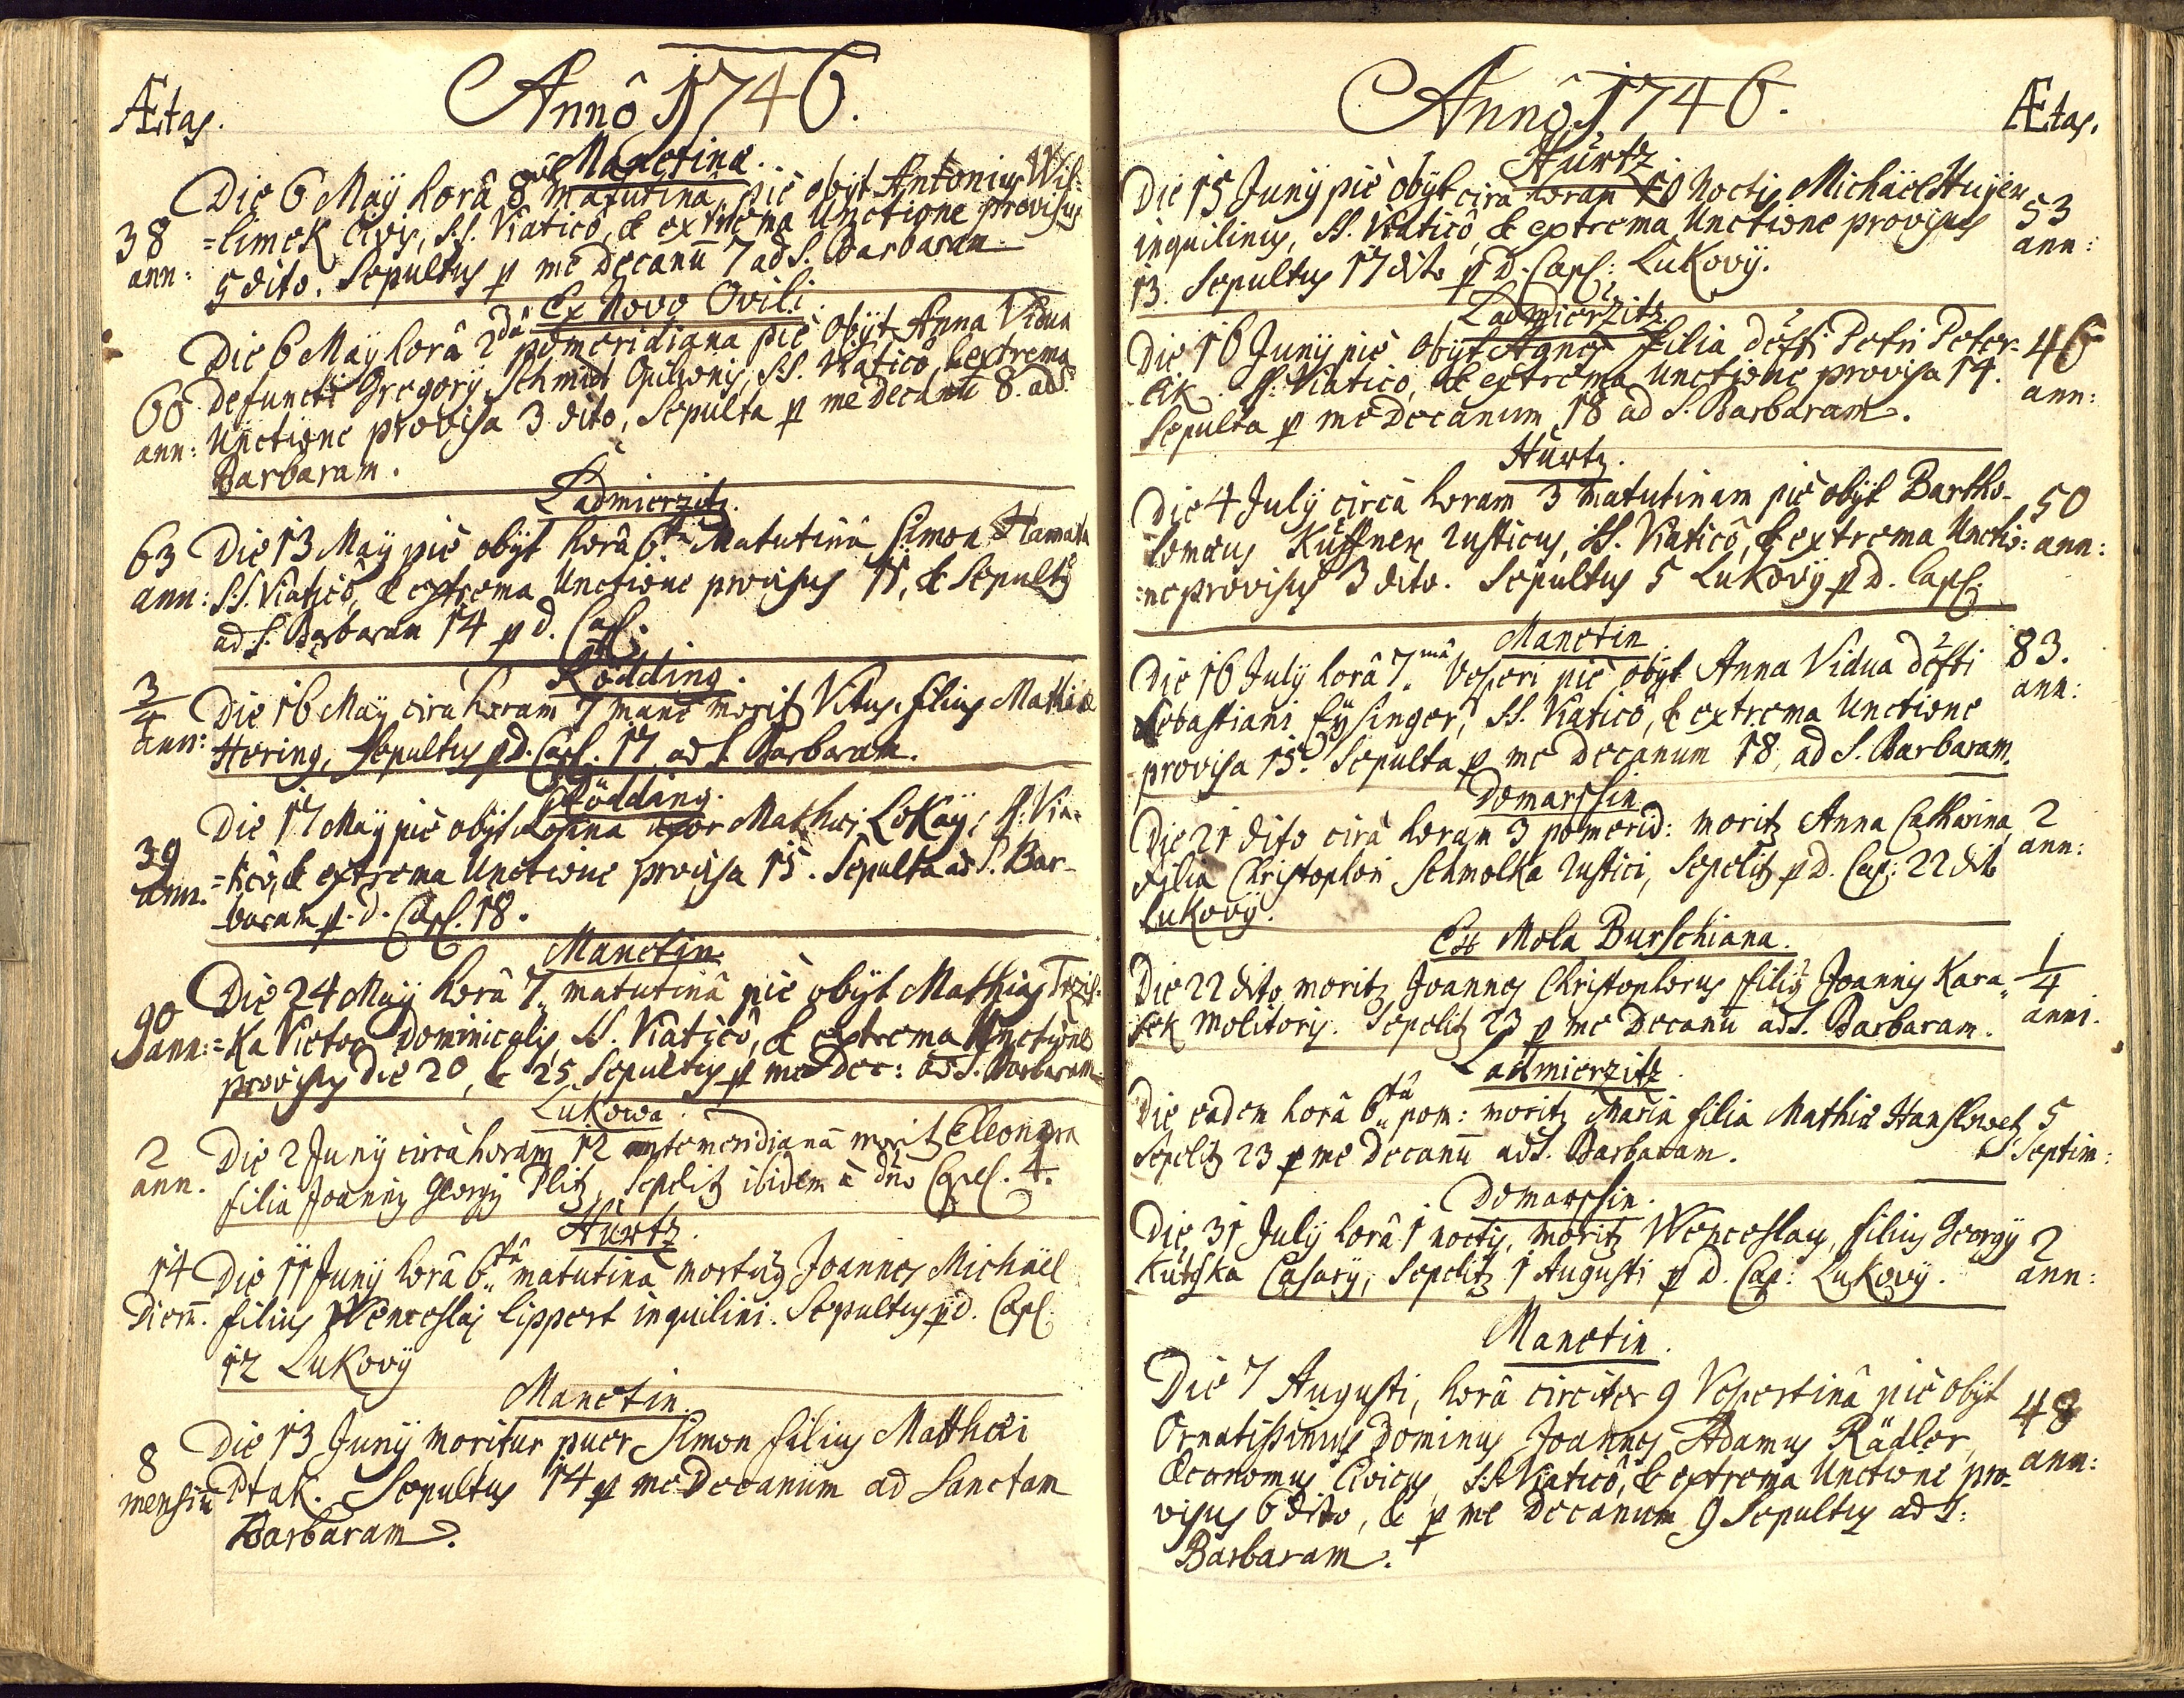 Annô 1746.
Ætas.
Manetinæ.
Die 6 Maÿ horâ 8vâ matutinâ, piè obÿt Antonius Wil-
38 =limek Civis, SS. Viaticô, & extrema Unctione provisus
ann: 5 dito. Sepultus p me Decanū 7 ad S. Barbaram.
Ex Novo Ovili.
Die 6 Maÿ horâ 2dâ pomeridiana piè obÿt Anna Vidua
66 Defuncti Gregorÿ Schmidt Opilionis, SS. Viaticô, & extrema
ann: Unctione provisa 3 dito, Sepulta p me Decanū 8. ad S.
Barbaram.
Ladmierzitz.
63 Die 13 Maÿ piè obÿt horâ 6tâ Matutinâ Simon Hamata
ann: SS. Viaticô, & extrema Unctione provisus 11, & Sepultq
ad S. Barbaram 14 p d. Capl:
Rödding.
3/4 Die 16 Maÿ circa horam 7 manè morit Vitus, filius Mathiæ
ann: Hering, Sepultus p D. Capl. 17 ad S. Barbaram.
Rödding.
Die 17 Maÿ piè obÿt Rosina uxor Mathæi Lokaÿ, SS. Via-
39 =ticô, & extrema Unctione provisa 15. Sepulta ad S. Bar-
ann. baram p. d. Capl. 18.
Manetin.
Die 24 Maÿ horâ 7. matutinâ piè obÿt Mathias
90 =ka Victor Dominicalis, SS. Viaticô, & extrema Unctione
ann: provisus die 20, & 25 Sepultus p me Dec: ad S. Barbaram.
Lukowa.
2 Die 2 Junÿ circa horam 12 antemeridianā morit Eleonora
ann. filia Joannis Georgÿ Plitz, Sepelit ibidem à dno Capel. 4.
Hurtz.
14 Die 11 Junÿ horâ 6tâ matutinâ mortuq Joannes Michäel
Dierū. filius Wenceslai Lippert inquilini. Sepultus p d. Capl.
12 Lukovÿ
Manetin.
Die 13 Junÿ moritur puer Simon filius Matthæi
8 Ptak. Sepultus 14 p me Decanum ad Sanctam
mensiū Barbaram.
Annô 1746.
Ætas.
Hurtz
Die 15 Junÿ piè obÿt circa horam 10 Noctis Michäel Hujer
inquilinus, SS. Viaticô, & extrema Unctione provisus 53
13. Sepultus 17 dito p D. Capl: Lukovÿ. ann:
Ladmierzitz
Die 16 Junÿ piè obÿt Agnes filia defti Petri Peter- 46
cik. SS. Viaticô, & extrema Unctione provisa 14. ann:
Sepulta p me Decanum 18 ad S. Barbaram.
Hurtz.
Die 4 Julÿ circa horam 3 matutinam piè obÿt Bartho- 50
lomæus Küffner rusticus, SS. Viaticô, & extrema Unctio: ann:
=ne provisus 3 dito. Sepultus 5 Lukovÿ p d. Capl.
Manetin
Die 16 Julÿ horâ 7mâ Vesperi piè obÿt Anna Vidua defti 83.
Sebastiani Eÿsinger, SS. Viaticô, & extrema Unctione ann:
provisa 15. Sepulta p me Decanum 18. ad S. Barbaram.
Domarssin
Die 21 dito circa horam 3 pomerid: morit Anna Catharina 2
filia Christophori Schmolka rustici, Sepelit p D. Cap: 22 dito ann:
Lukovÿ.
Ex Mola Burschiana.
Die 22 dito morit Joannes Christophorus filiq Joannis Kara- 1/4
sek Molitoris. Sepelit 23 p me Decanū ad S. Barbaram. anni.
Ladmierzitz.
Die eadem horâ 6tâ pom: morit Maria filia Mathiæ Hanslowetz 5
Sepelit 23 p me Decanū ad S. Barbaram. Septim:
Domarssin.
Die 31 Julÿ horâ 1 noctis, morit Wenceslaus, filius Georgÿ 2
Kutzka Casarÿ, Sepelit 1 Augusti p D. Cap: Lukovÿ. ann:
Manetin.
Die 7 Augusti, horâ circiter 9 Vespertinâ piè obÿt
Ornatissimus Dominus Joannes Adamus Rädler, 48
Œconomus Civicus, SS. Viaticô, & extrema Unctione pro- ann:
visus 6 dito, & p me Decanum 9 Sepultus ad S:
Barbaram.